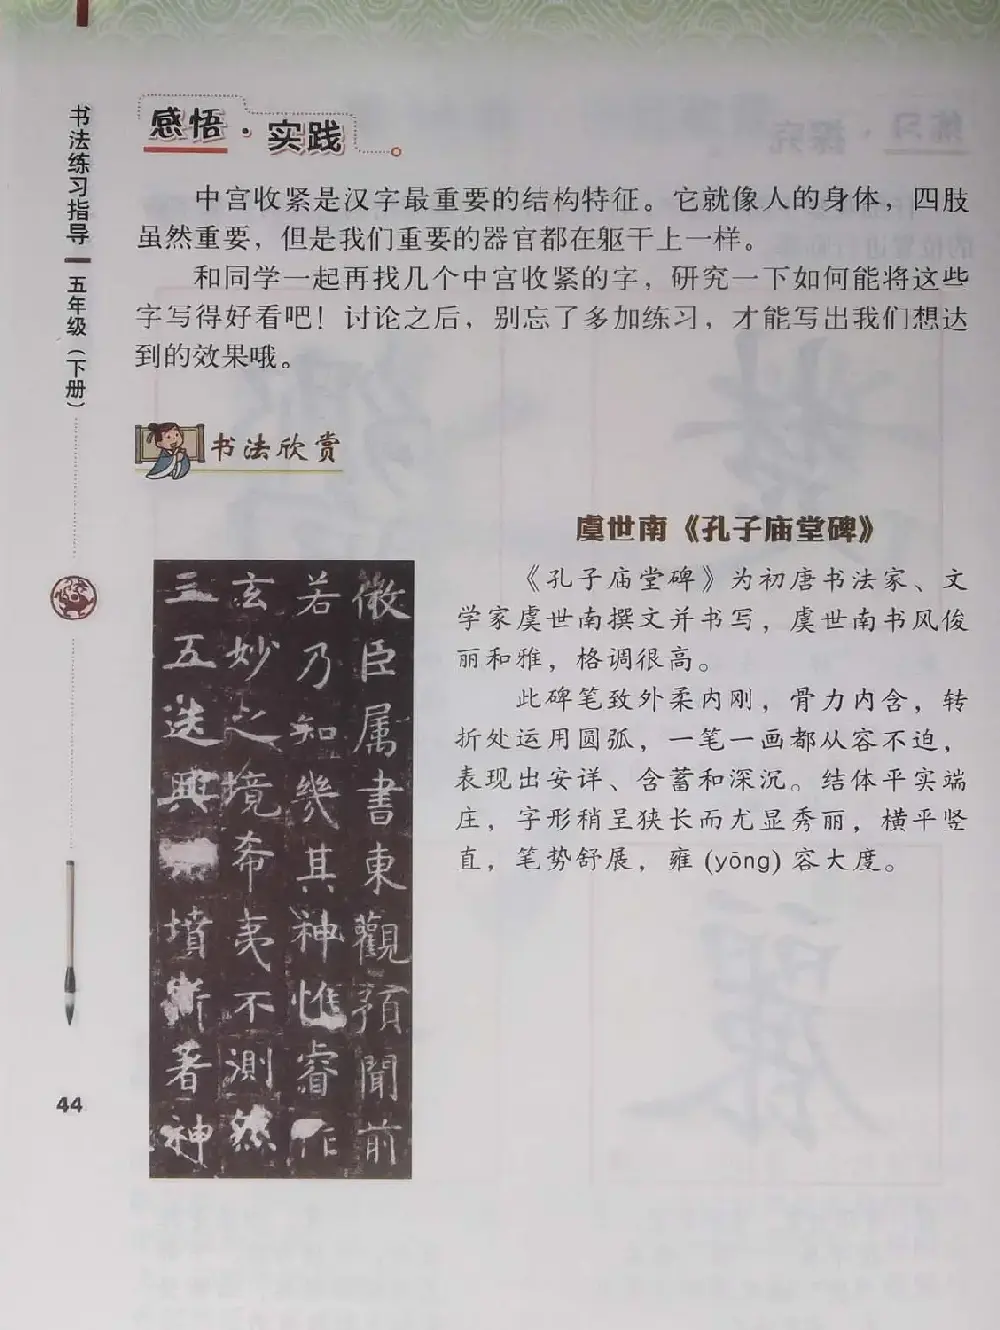 书法练习指导
五年级（下册）
44
感悟·实践
中宫收紧是汉字最重要的结构特征。它就像人的身体，四肢
虽然重要，但是我们重要的器官都在躯干上一样。
和同学一起再找几个中宫收紧的字，研究一下如何能将这些
字写得好看吧！讨论之后，别忘了多加练习，才能写出我们想达
到的效果哦。
书法欣赏
虞世南《孔子庙堂碑》
《孔子庙堂碑》为初唐书法家、文
学家虞世南撰文并书写，虞世南书风俊
丽和雅，格调很高。
此碑笔致外柔内刚，骨力内含，转
折处运用圆弧，一笔一画都从容不迫，
表现出安详、含蓄和深沉。结体平实端
庄，字形稍呈狭长而尤显秀丽，横平竖
直，笔势舒展，雍 (yōng) 容大度。
微臣属書東觀預聞前
若乃知幾其神惟睿作
玄妙之境希夷不測然
三五迭興墳斯著神